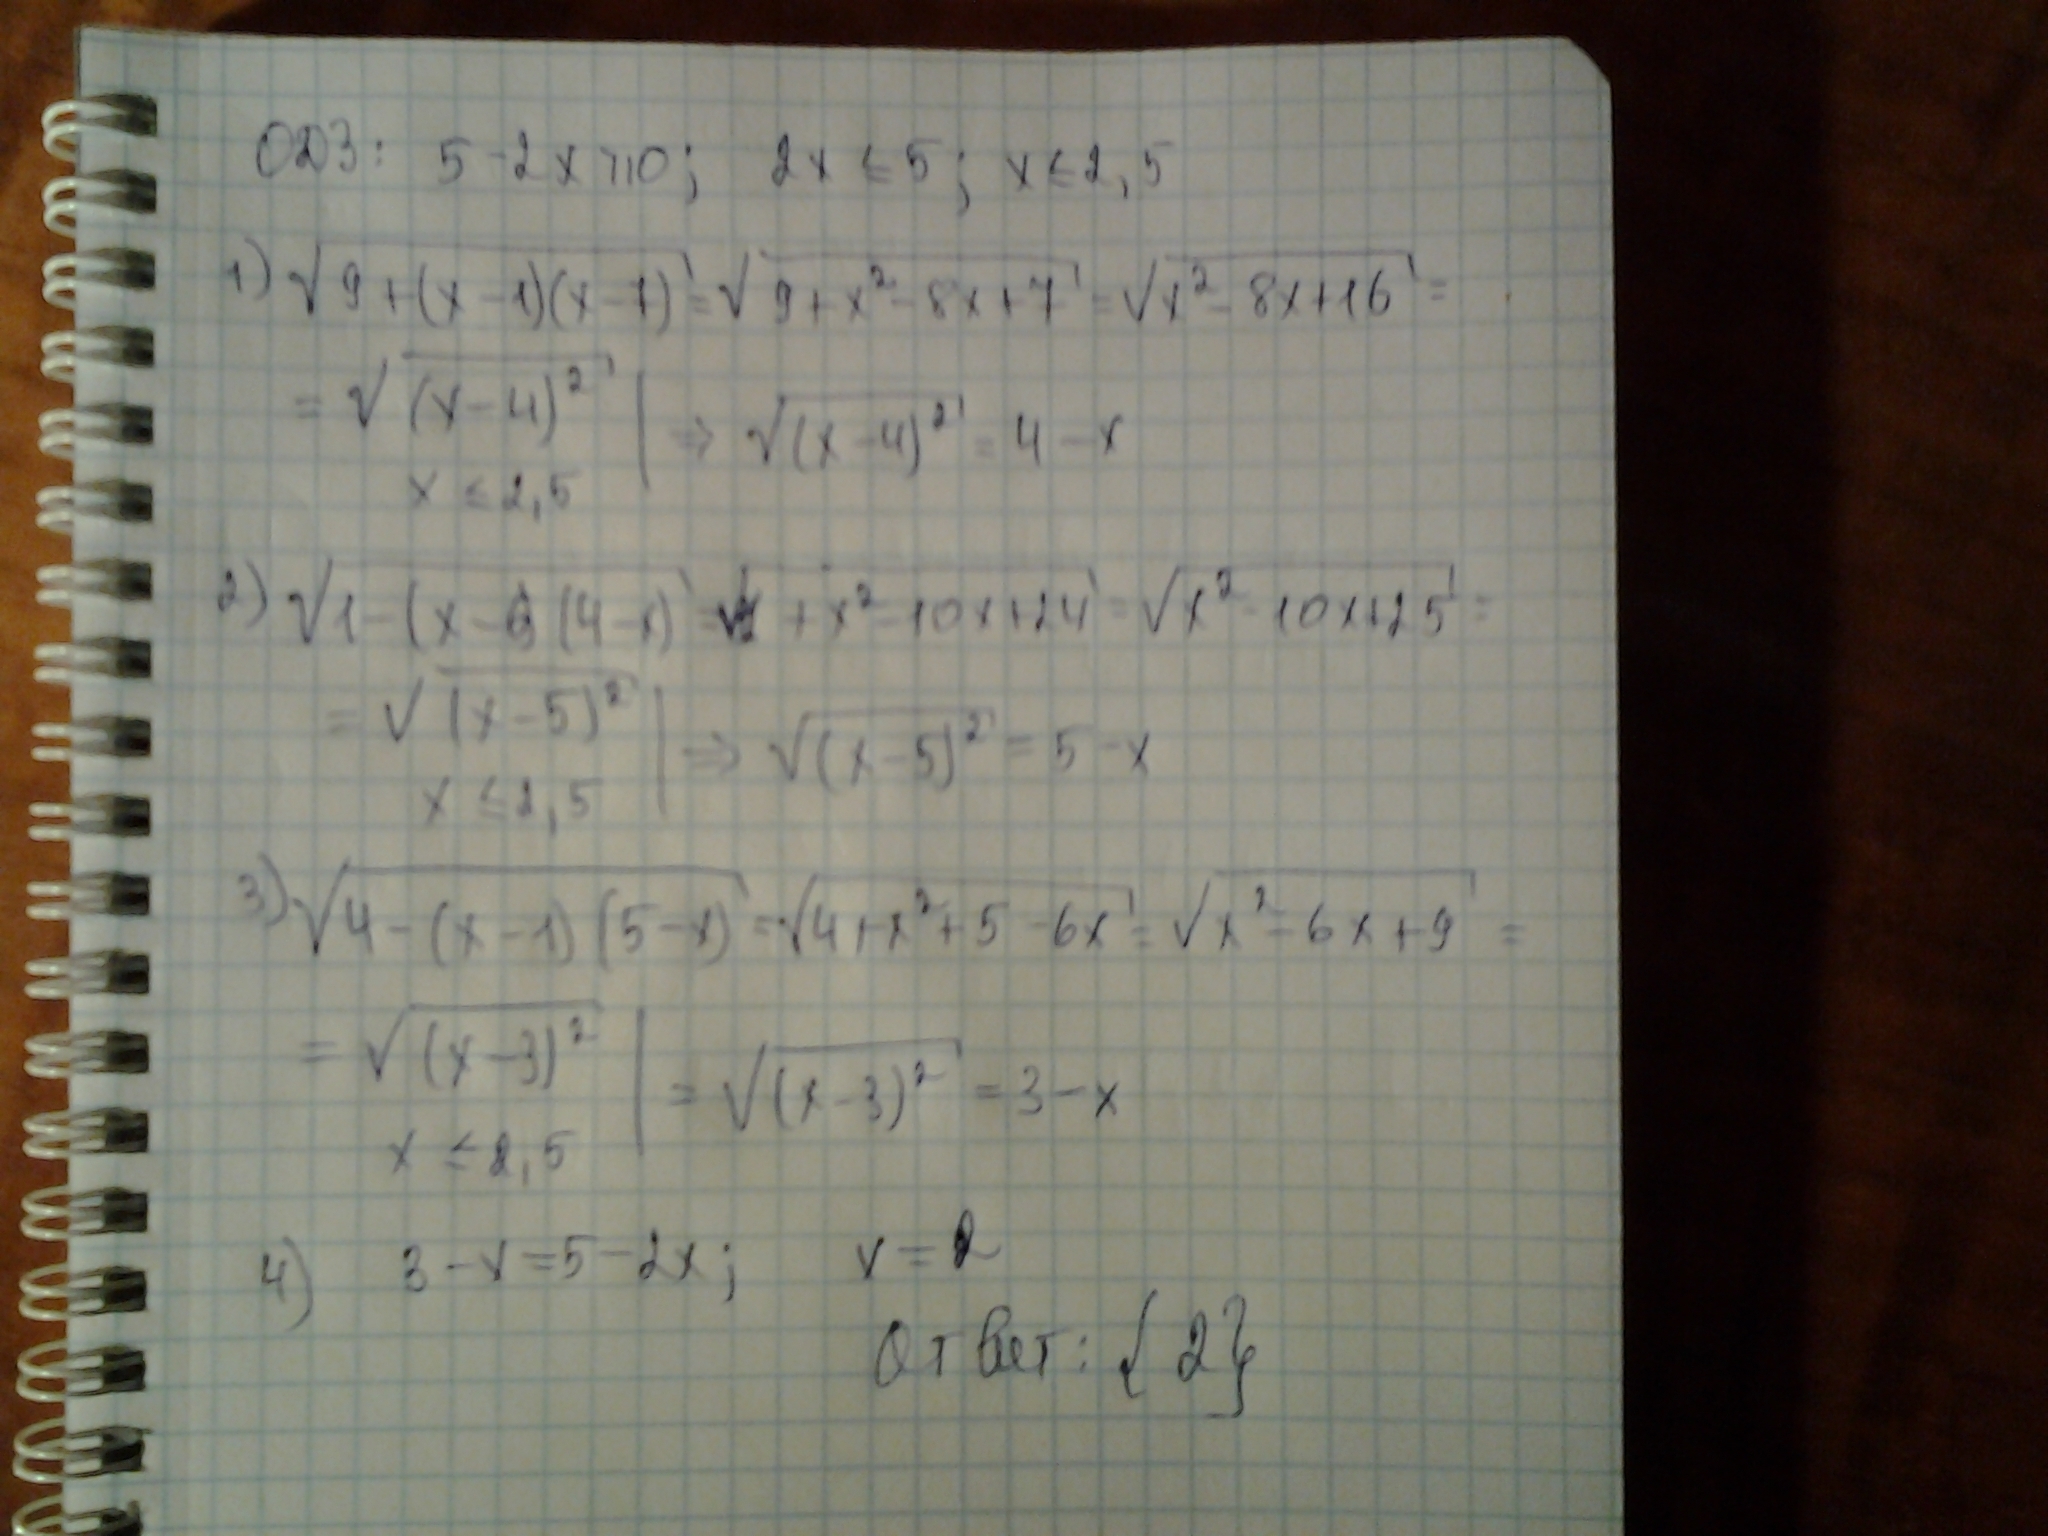 ОДЗ: 5-2x⩾0; 2x ≤ 5; x ≤ 2,5
1) √(9+(x-1)(x-7)) = √(9+x²-8x+7) = √(x²-8x+16) =
= √((x-4)²) | ⇒ √((x-4)²) = 4-x
x ≤ 2,5
2) √(1-(x-6)(4-x)) = √(1+x²-10x+24) = √(x²-10x+25) =
= √((x-5)²) | ⇒ √((x-5)²) = 5-x
x ≤ 2,5
3) √(4-(x-1)(5-x)) = √(4+x²+5-6x) = √(x²-6x+9) =
= √((x-3)²) | = √((x-3)²) = 3-x
x ≤ 2,5
4) 3-x=5-2x; x=2
Ответ: {2}